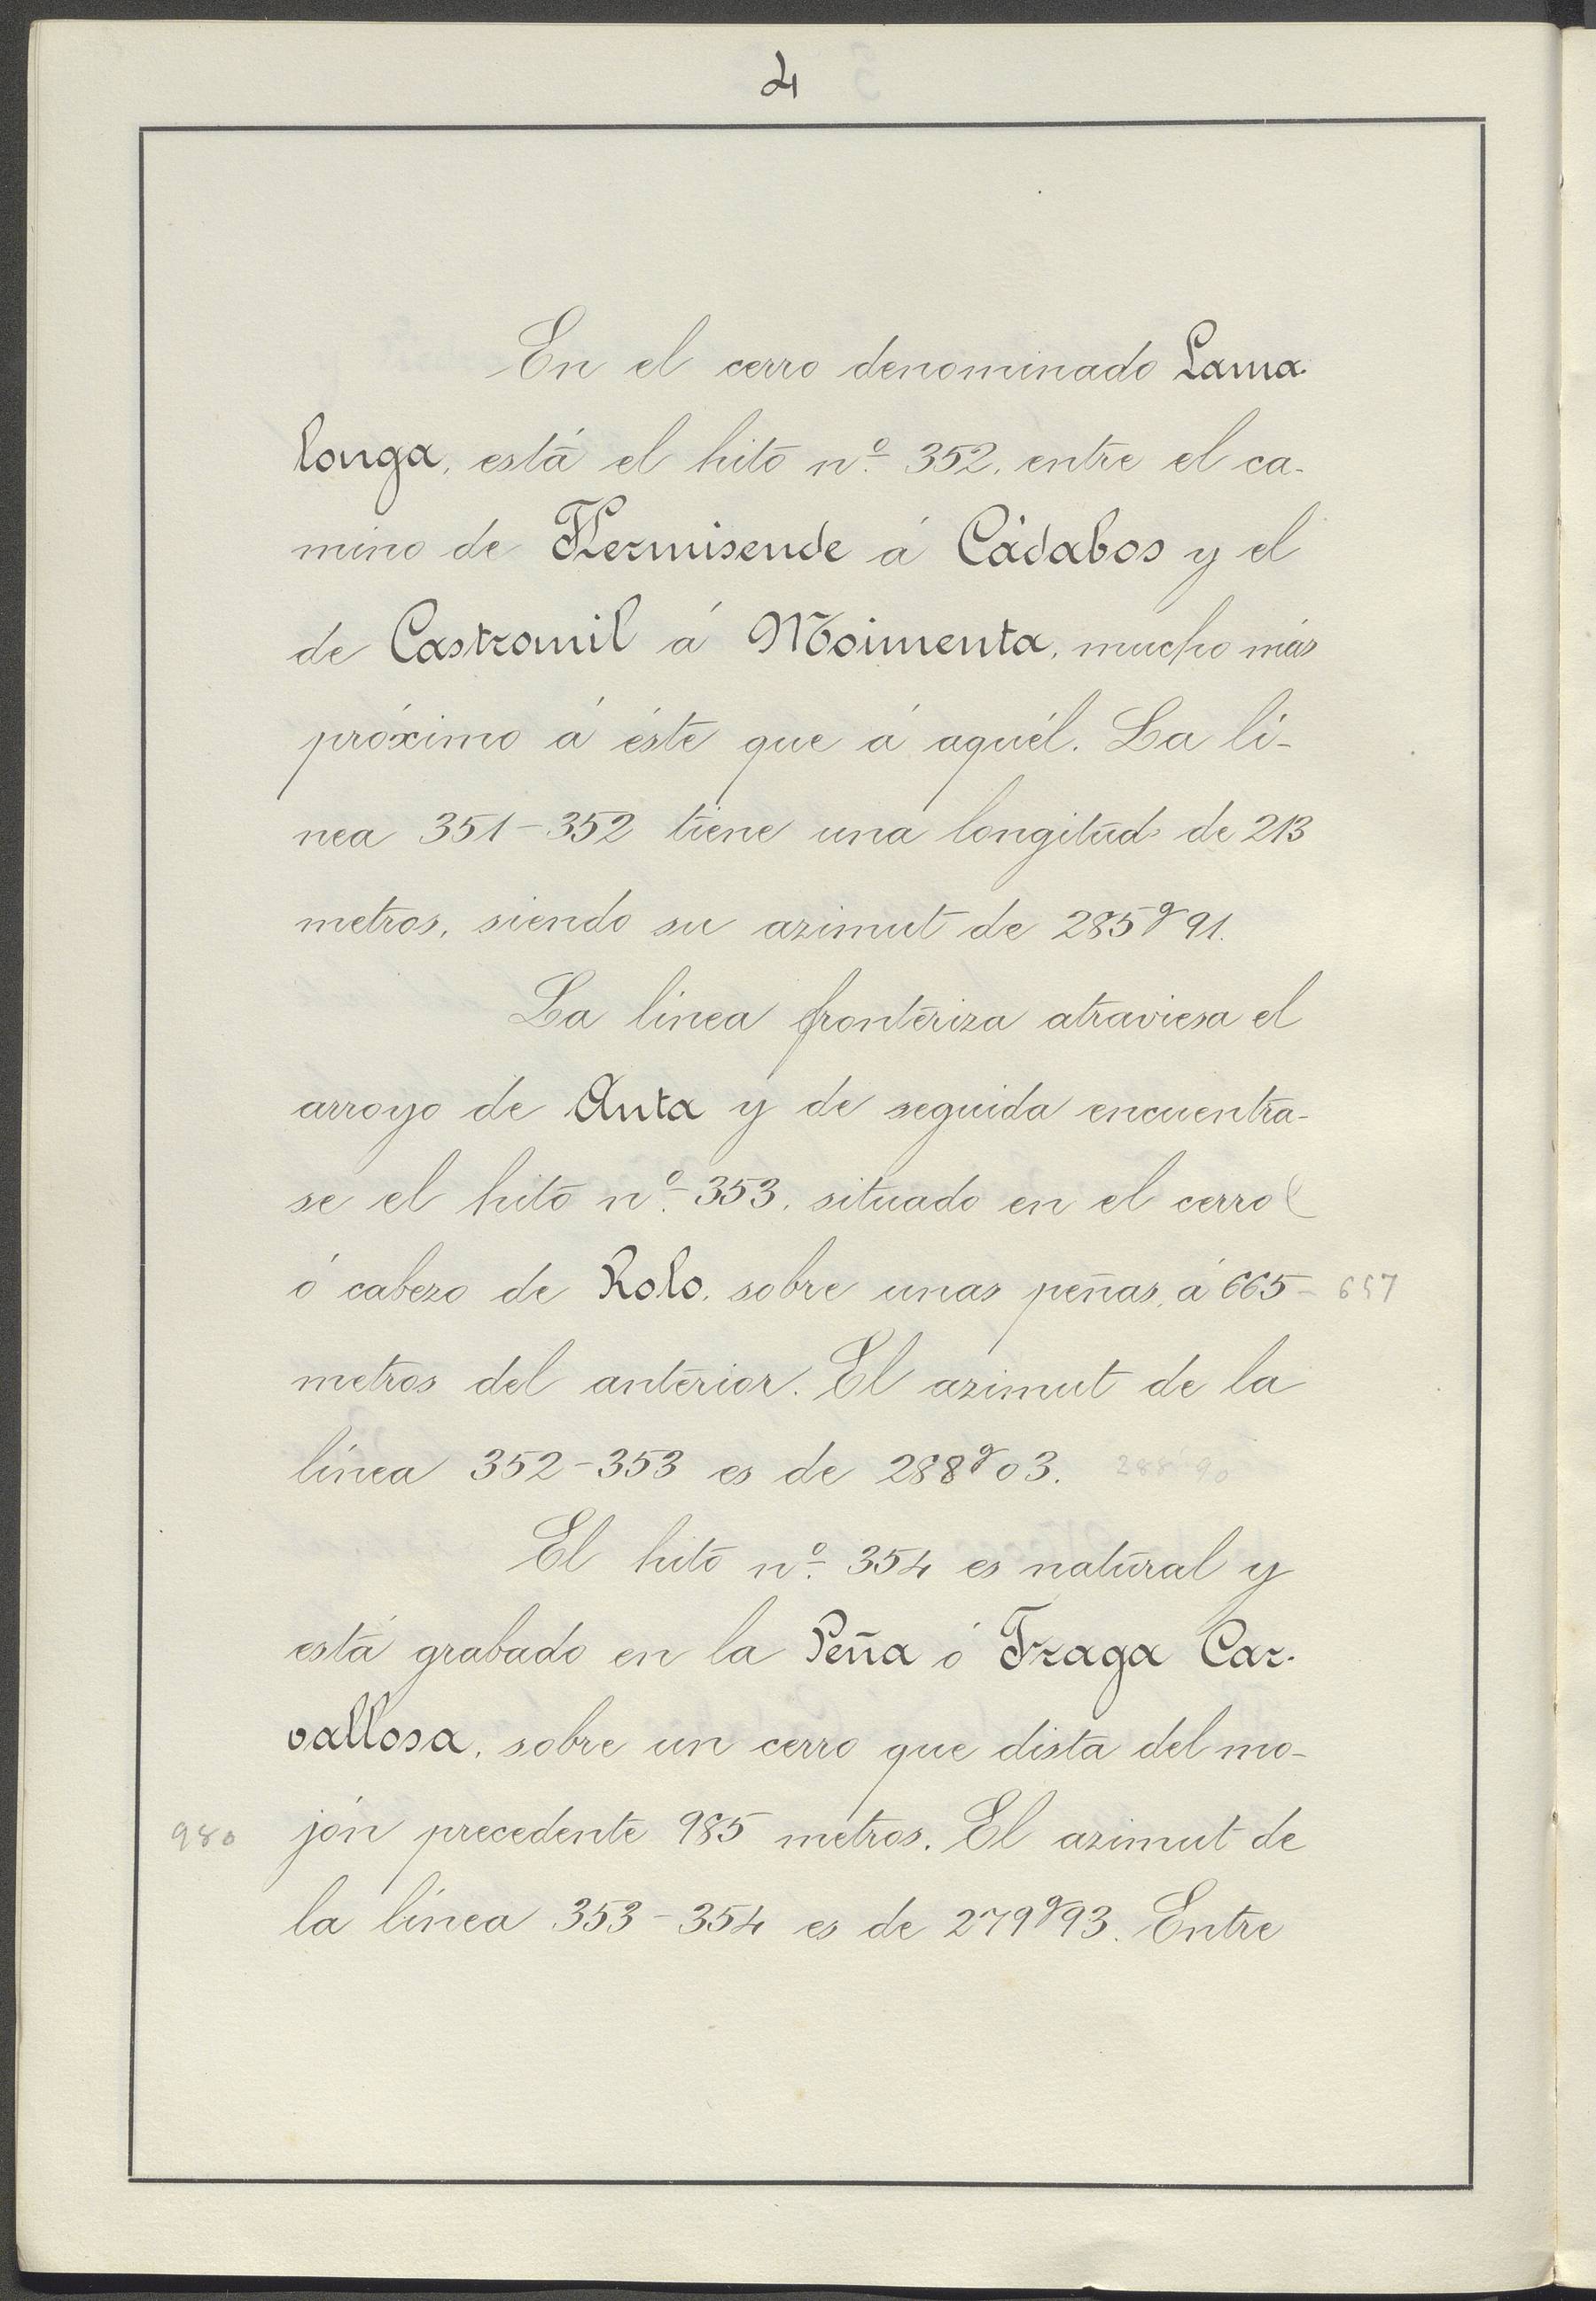 4
En el cerro denominado Lama-
longa, está el hito nº 352, entre el ca-
mino de Hermisende á Cádabos y el
de Castromil á Moimenta, mucho más
próximo á éste que á aquél. La lí-
nea 351-352 tiene una longitud de 213
metros, siendo su azimut de 285g91.
La línea fronteriza atraviesa el
arroyo de Anta y de seguida encuéntra-
se el hito nº 353, situado en el cerro
ó cabezo de Rolo, sobre unas peñas, á 665 - 657
metros del anterior. El azimut de la
línea 352-353 es de 288g03. 288 90
El hito nº 354 es natural y
está grabado en la Peña ó Fraga Car-
vallosa, sobre un cerro que dista del mo-
980 jón precedente 985 metros. El azimut de
la línea 353-354 es de 279g93. Entre